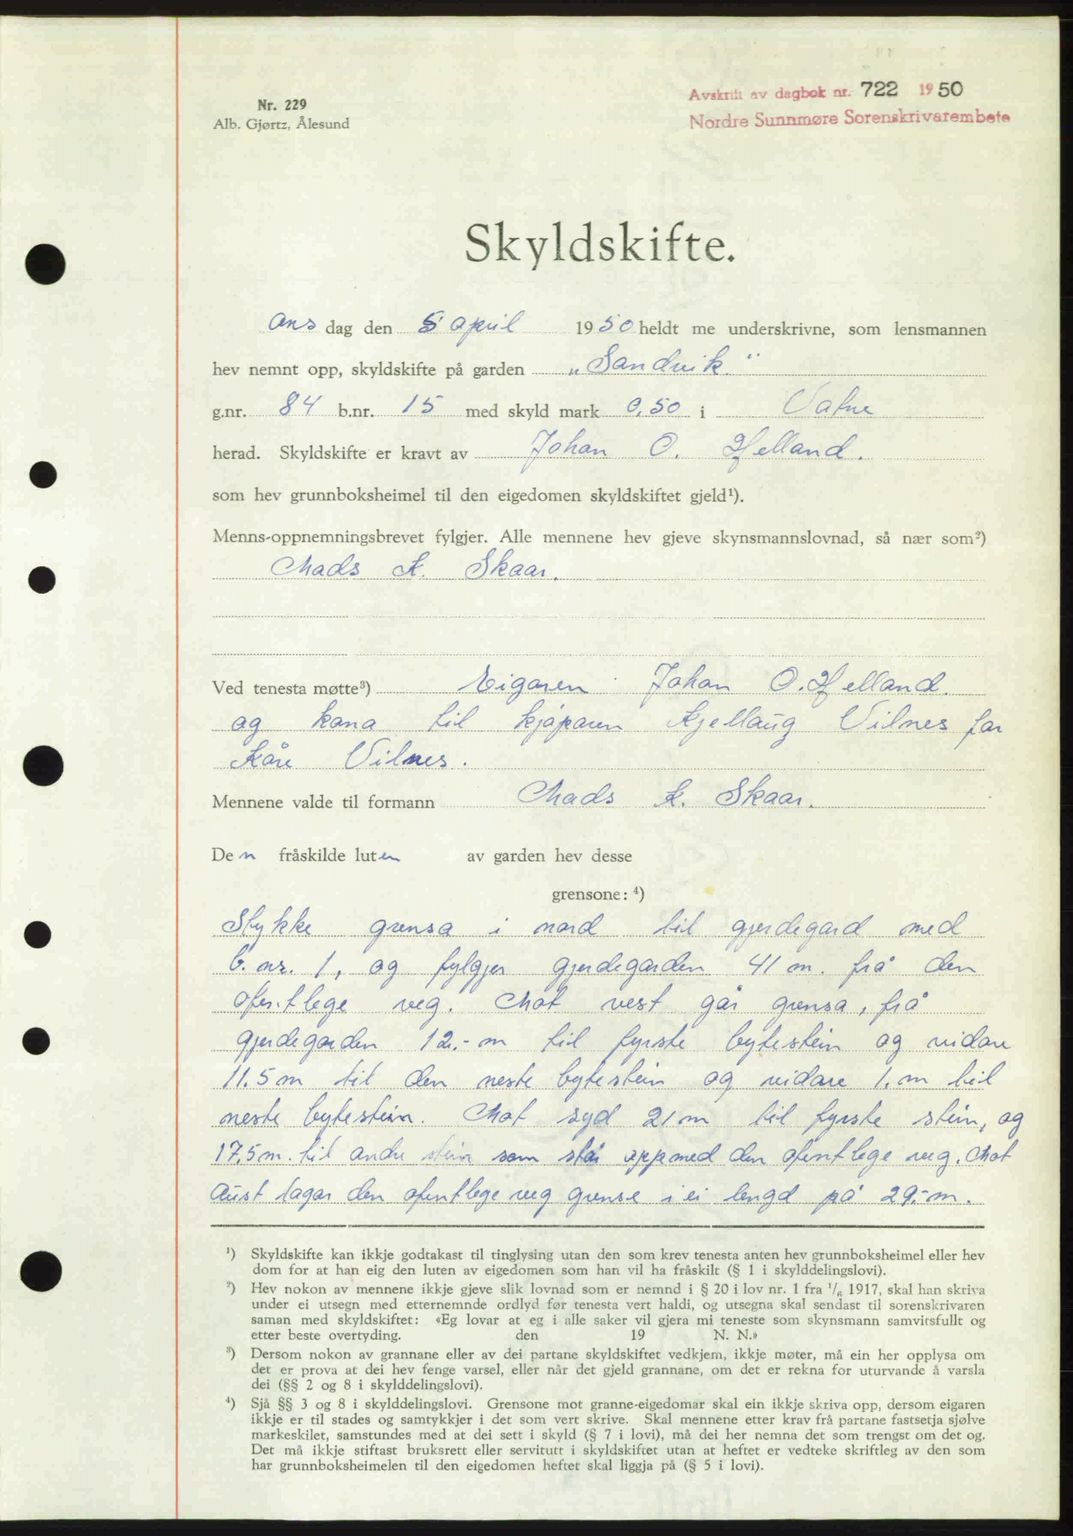 Nr. 229
Alb. Gjørtz, Ålesund
Avskrift av dagbok nr. 722 1950
Nordre Sunnmøre Sorenskrivarembete
Skyldskifte.
Ons dag den 5 april 1950 heldt me underskrivne, som lensmannen
hev nemnt opp, skyldskifte på garden „Sandvik"
g.nr. 84 b.nr. 15 med skyld mark 0,50 i Vatne
herad. Skyldskifte er kravt av Johan O. Helland.
som hev grunnboksheimel til den eigedomen skyldskiftet gjeld¹).
Menns-oppnemningsbrevet fylgjer. Alle mennene hev gjeve skynsmannslovnad, så nær som²)
Mads K. Skaar.
Ved tenesta møtte³) Eigaren Johan O. Helland.
og kona til kjøparen Kjellaug Vilnes for
Kåre Vilnes.
Mennene valde til formann Mads K. Skaar.
Den fråskilde luten av garden hev desse
grensone: ⁴)
Stykke grensa i nord til gjerdegard med
b. nr. 1, og fylgjer gjerdegarden 41 m. frå den
ofentlege veg. Mot vest går grensa, frå
gjerdegarden 12.- m til fyrste bytestein og vidare
11.5 m til den neste bytestein og vidare 1. m til
neste bytestein. Mot syd 21 m til fyrste stein, og
17,5 m. til andre stein som står opp med den ofentlege veg. Mot
Aust lagar den ofentlege veg grense i ei lengd på 29,- m.
¹) Skyldskifte kan ikkje godtakast til tinglysing utan den som krev tenesta anten hev grunnboksheimel eller hev
dom for at han eig den luten av eigedomen som han vil ha fråskilt (§ 1 i skylddelingslovi).
²) Hev nokon av mennene ikkje gjeve slik lovnad som er nemnd i § 20 i lov nr. 1 fra ¹/₆ 1917, skal han skriva
under ei utsegn med etternemnde ordlyd før tenesta vert haldi, og utsegna skal sendast til sorenskrivaren
saman med skyldskiftet: «Eg lovar at eg i alle saker vil gjera mi teneste som skynsmann samvitsfullt og
etter beste overtyding. den 19 N. N.»
³) Dersom nokon av grannane eller av dei partane skyldskiftet vedkjem, ikkje møter, må ein her opplysa om
det er prova at dei hev fenge varsel, eller når det gjeld grannane, om det er rekna for uturvande å varsla
dei (§§ 2 og 8 i skylddelingslovi).
⁴) Sjå §§ 3 og 8 i skylddelingslovi. Grensone mot granne-eigedomar skal ein ikkje skriva opp, dersom eigaren
ikkje er til stades og samtykkjer i det som vert skrive. Skal mennene etter krav frå partane fastsetja sjølve
markeskilet, samstundes med at dei sett i skyld (§ 7 i lovi), må dei her nemna det som trengst om det og.
Det må ikkje stiftast bruksrett eller servitutt i skyldskiftet utan at heftet er vedteke skriftleg av den som
har grunnboksheimelen til den eigedomen heftet skal liggja på (§ 5 i lovi).